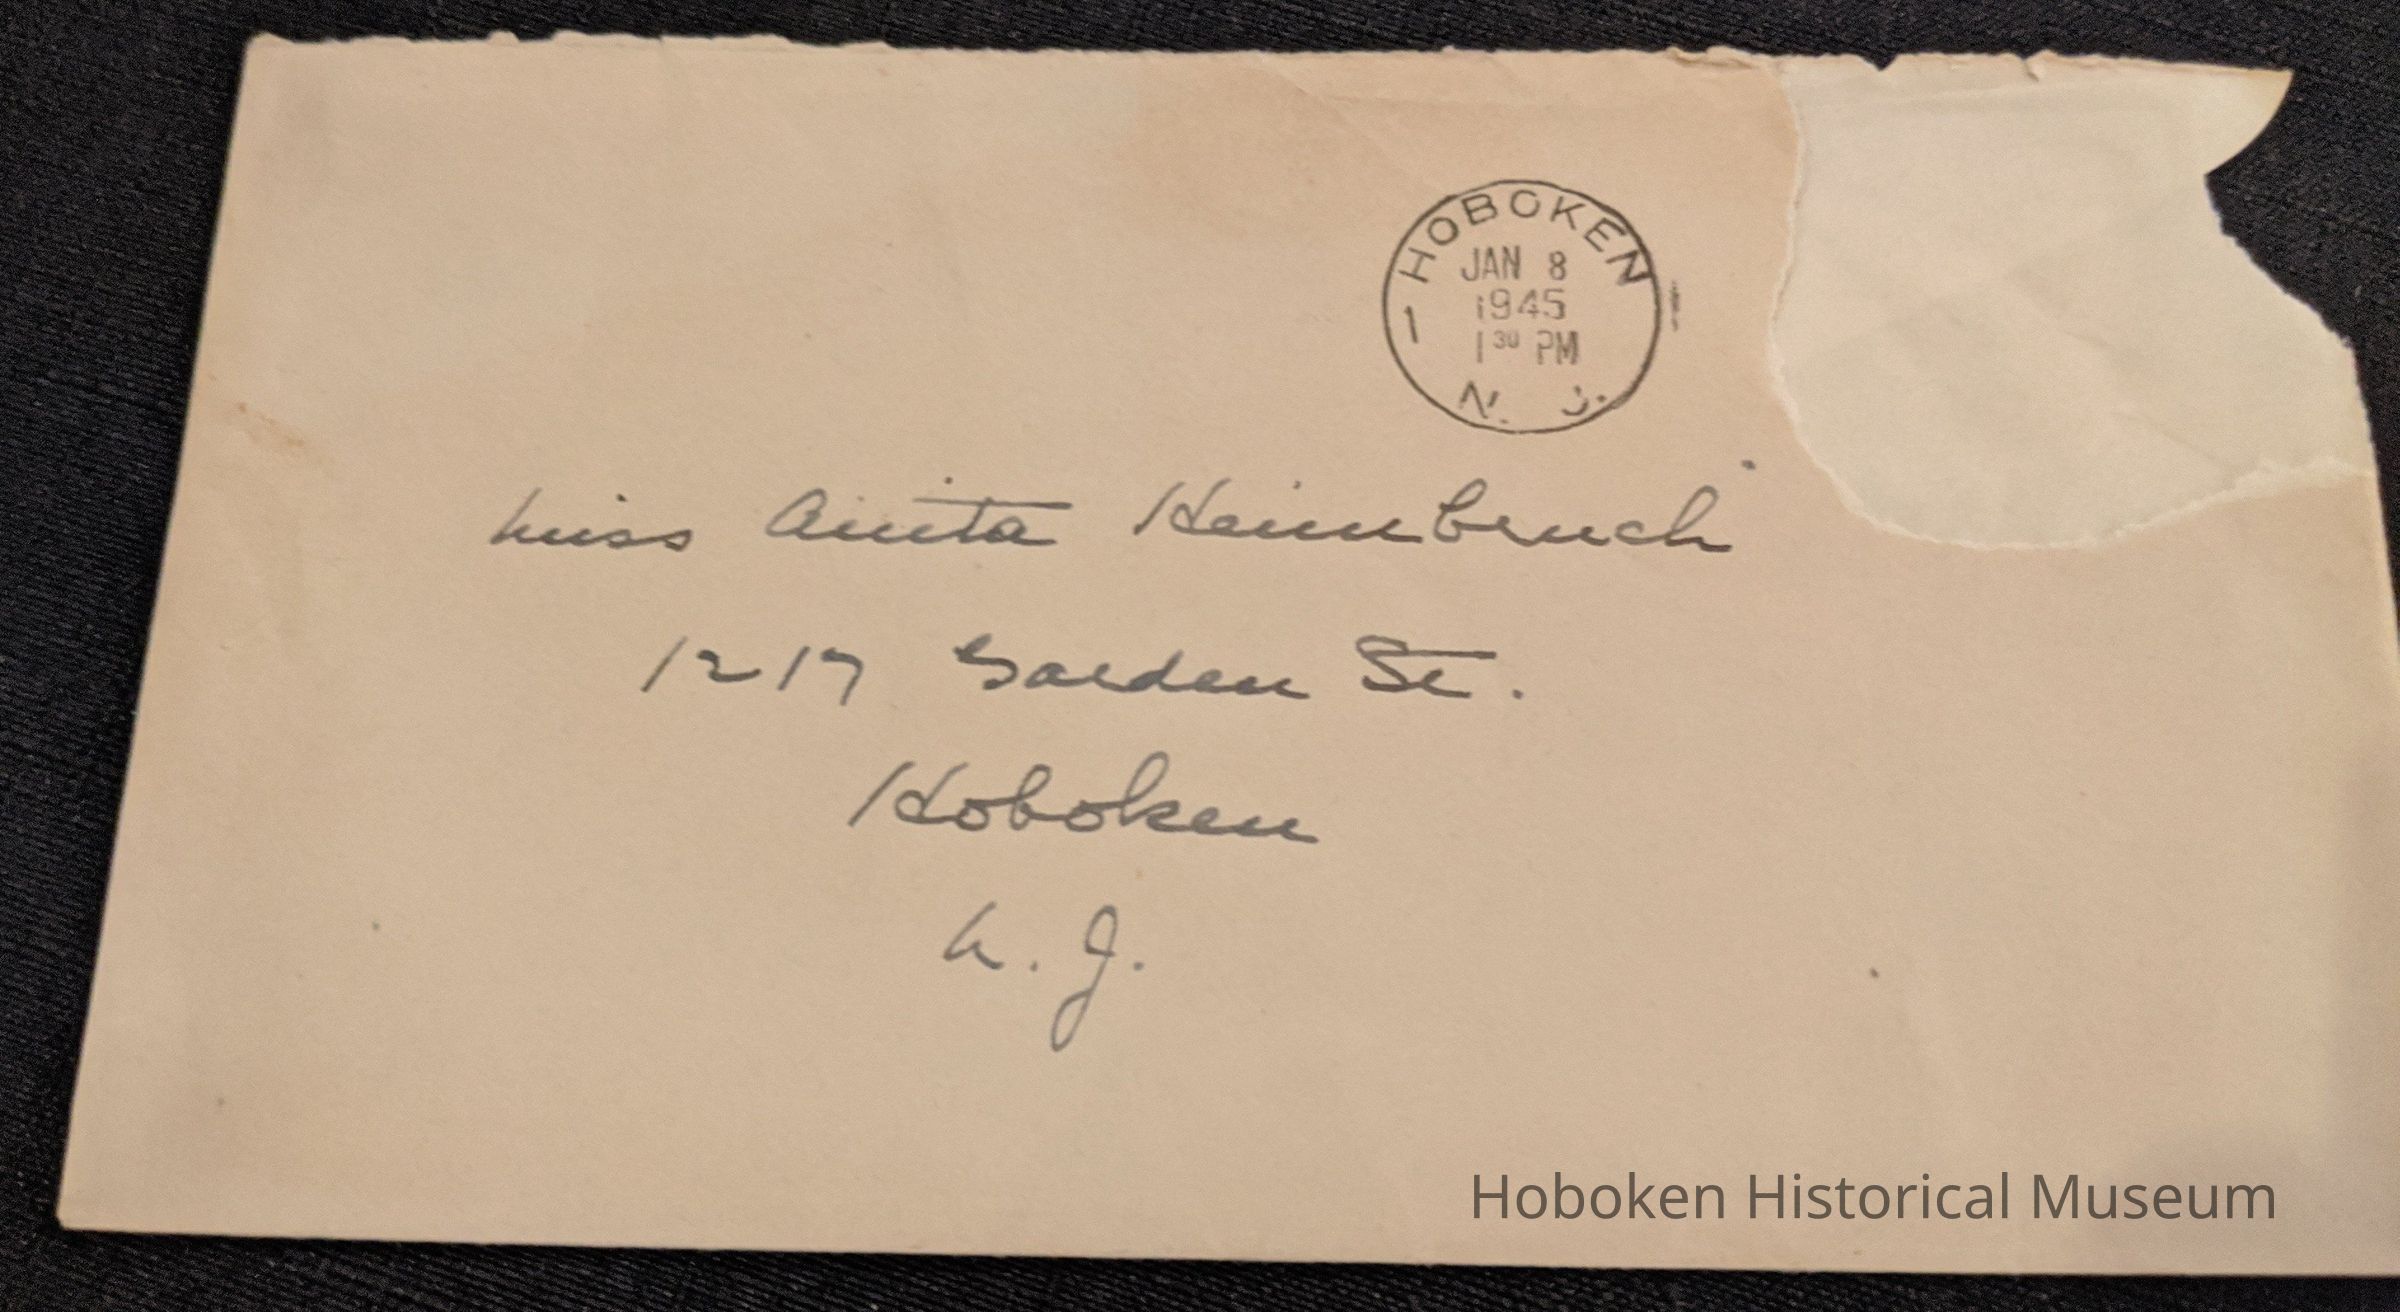 HOBOKEN
JAN 8
1945
1 30 PM
1
N. J.
Miss Anita Heimbruch
1217 Garden St.
Hoboken
N. J.
Hoboken Historical Museum